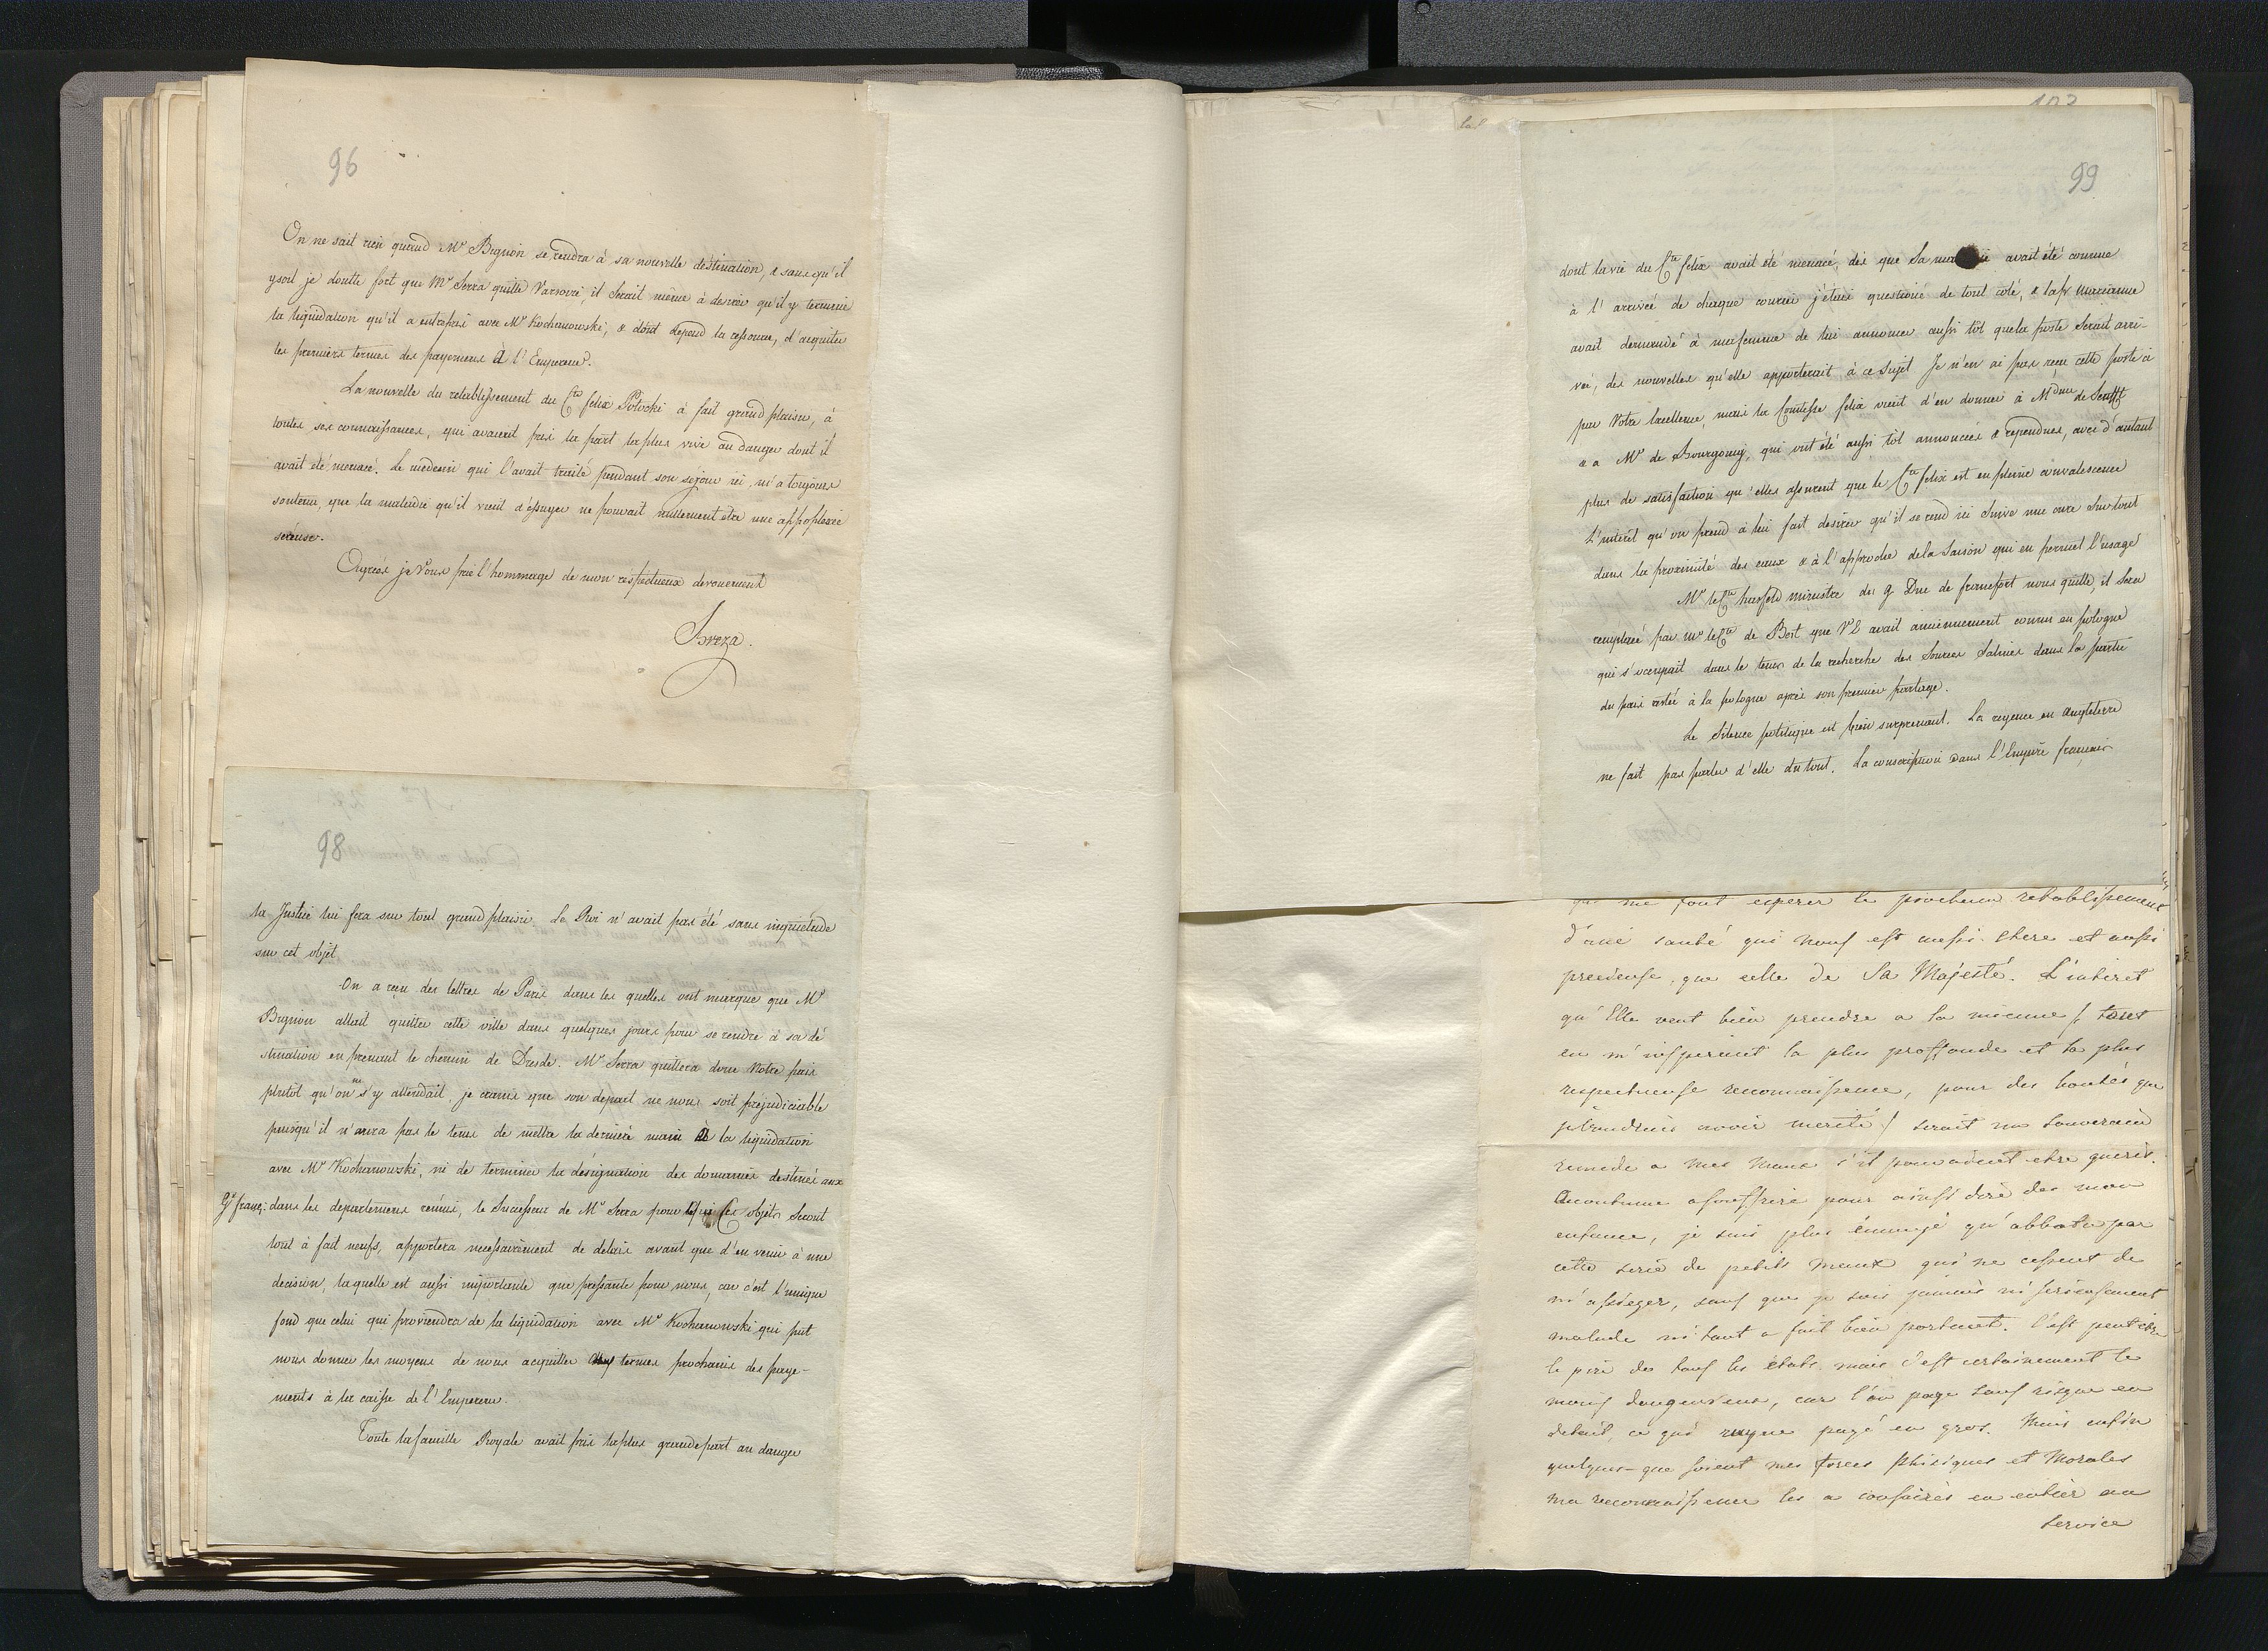 96
On ne sait rien quand Mr Bignon se rendra à sa nouvelle destination, & sans qu'il
y soit je doutte fort que Mr Serra quitte Varsovie, il serait même à desirer qu'il y termine
la liquidation qu'il a entrepris avec Mr Kochanowski, & dont depend la ressource, d'acquiter
les premiers termes des payemens à l'Empereur.
La nouvelle du retablissement du Cte felix Potocki à fait grand plaisir, à
toutes ses connaissances, qui avaient pris la part la plus vive au danger dont il
avait été menacé. Le medecin qui l'avait traité pendant son séjour ici, m'a toujours
soutenu, que la maladie qu'il vient d'éssuyer ne pouvait nullement etre une appoplexie
séreuse.
Agréés je Vous prie l'hommage de mon respectueux devouement
Breza.
98
la Justice lui fera sur tout grand plaisir. Le Roi n'avait pas été sans inquiétude
sur cet objet
On a reçu des lettres de Paris dans les quelles ont marque que Mr
Bignon allait quitter cette ville dans quelques jours pour se rendre à sa dé
stination en prenant le chemin de Dresde. Mr Serra quittera donc Notre pais
plutôt qu'on ne s'y attendait, je crains que son depart ne nous soit prejudiciable
puisqu'il n'aura pas le tems de mettre la derniere main à la liquidation
avec Mr Kochanowski, ni de terminer la désignation des domaines destinés aux
Gx franç: dans les departemens reünis, le Successeur de Mr Serra pour qui Ces objets seront
tout à fait neufs, apportera necessairement de delais avant que d'en venir à une
decision, la quelle est aussi importante que pressante pour nous, car c'est l'unique
fond que celui qui proviendra de la liquidation avec Mr Kochanowski qui put
nous donner les moyens de nous acquitter termes prochains des paye-
ments à la caisse de l'Empereur.
Toute la famille Royale avait pris la plus grande part au danger
99
dont la vie du Cte felix avait été menacé, dès que Sa avait été connue
à l'arrivée de chaque courier j'étais questioné de tout coté, & la Pr Marianne
avait demandé à ma femme de lui annoncer aussi tôt que la poste serait arri-
vée, des nouvelles qu'elle apporterait à ce sujet Je n'en ai pas reçu cette poste ci
par Votre Excellence, mais la Comtesse felix vient d'en donner à Mdme de Senfft
& a Mr de Bourgoing, qui ont été aussi tôt annoncées & rependues, avec d'autant
plus de satisfaction qu'elles assurent que le Cte felix est en pleine convalescence
L'interêt qu'on prend à lui fait desirer qu'il se rend ici suivre une cure sur tout
dans la proximité des eaux & à l'approche de la Saison qui en permet l'usage
Mr le Cte hatsfeld ministre du g Duc de francfort nous quitte, il sera
remplacé par mr le Cte de Best que V E avait anciennement connu en pologne
qui s'occupait dans le tems de la recherche des Sources Salines dans la partie
du pais restée à la pologne après son premier partage.
Le Silence politique est bien surprenant. La regence en Angleterre
ne fait pas parler d'elle du tout. La conscription dans l'Empire français
qui me font esperer le prochain retablissement
d'une santé qui nous est aussi chere et aussi
precieuse, que celle de Sa Majesté. L'interet
qu'Elle veut bien prendre a la mienne /: tout
en m'inspirant la plus proffonde et la plus
respectueuse reconnaissance, pour des bontés que
je voudrais avoir merité :/ serait un souverain
remede a mes maux s'il pouvoient etre gueris.
Accoutumé a souffrire pour ainsi dire des mon
enfance, je suis plus ennuyé qu'abbatu par
cette serie de petits maux qui ne cessent de
m'assieger, sans que je sois jamais ni serieusement
malade ni tout a fait bien portant. C'est peut etre
le pire de tous les états mais c'est certainement le
moins dangereux, car l'on paye sans risque en
detail, ce qui payé en gros. Mais enfin
quelques que soient mes forces phisiques et Morales
ma reconnaissance les a consacrés en entier au
service